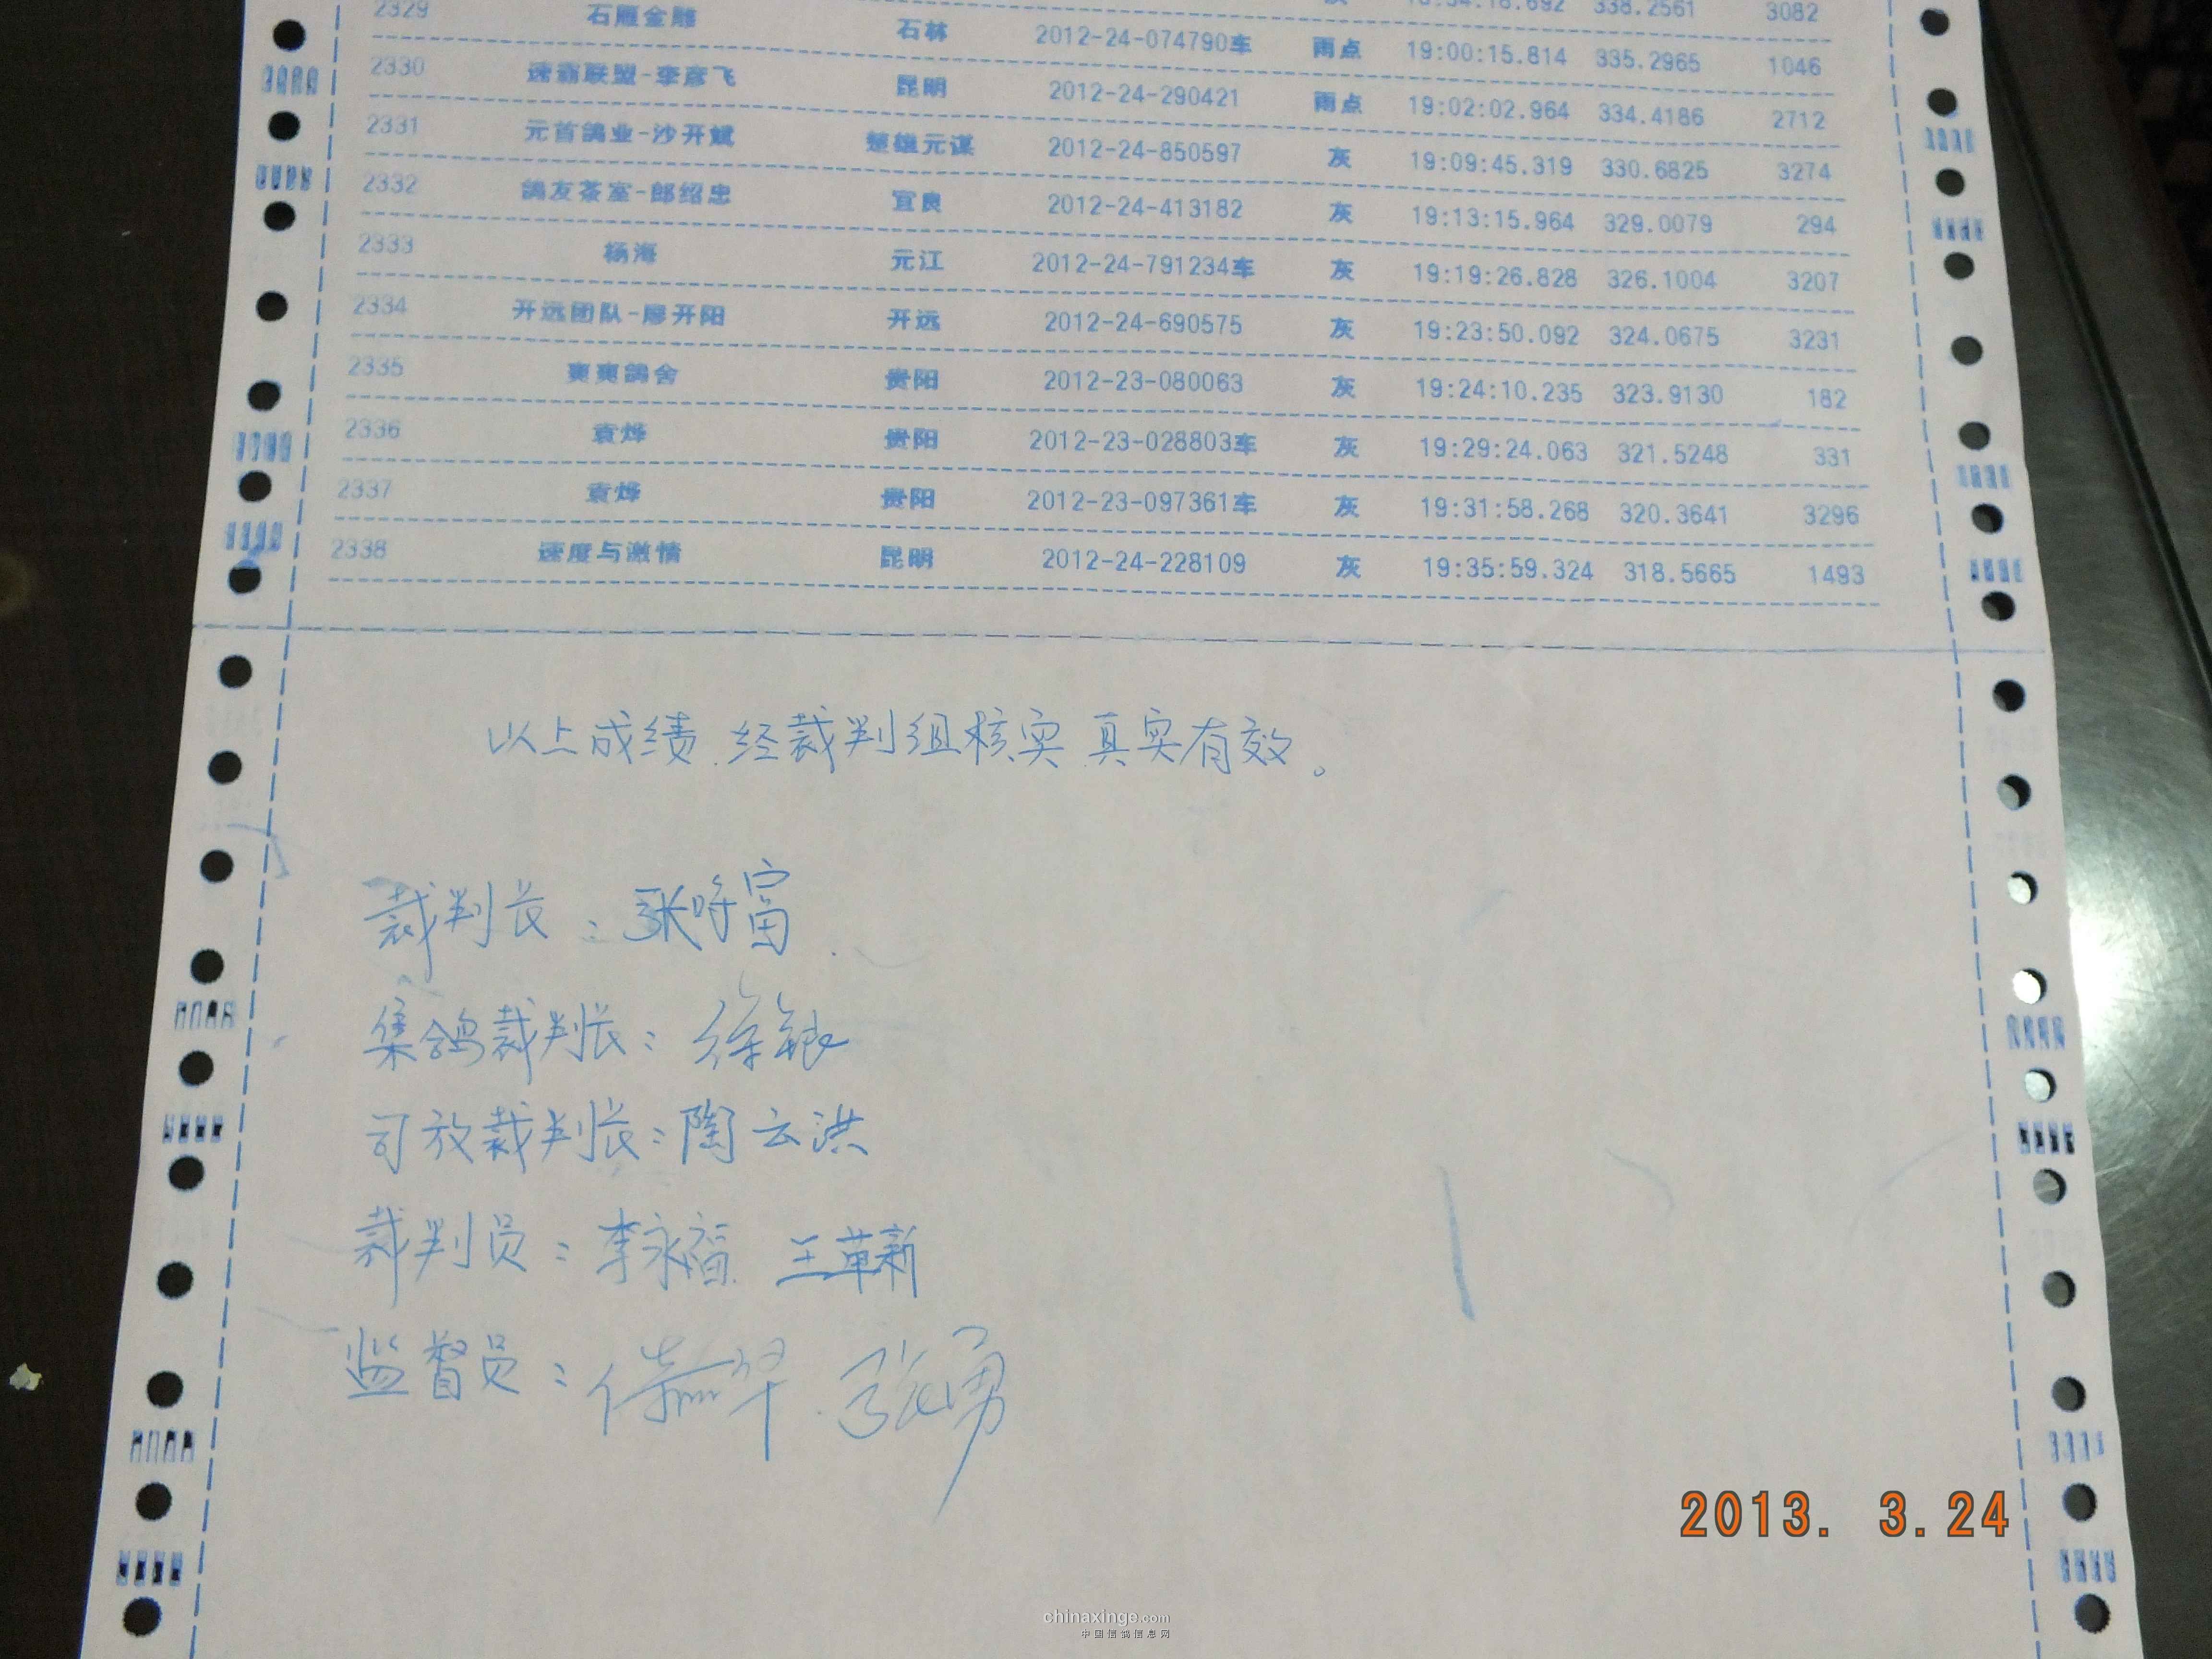 338.2561 3082
2329 石雁金雕 石林 2012-24-074790车 雨点 19:00:15.814 335.2965 1046
2330 速霸联盟-李彦飞 昆明 2012-24-290421 雨点 19:02:02.964 334.4186 2712
2331 元首鸽业-沙开斌 楚雄元谋 2012-24-850597 灰 19:09:45.319 330.6825 3274
2332 鸽友茶室-郎绍忠 宜良 2012-24-413182 灰 19:13:15.964 329.0079 294
2333 杨海 元江 2012-24-791234车 灰 19:19:26.828 326.1004 3207
2334 开远团队-廖开阳 开远 2012-24-690575 灰 19:23:50.092 324.0675 3231
2335 爽爽鸽舍 贵阳 2012-23-080063 灰 19:24:10.235 323.9130 182
2336 袁烨 贵阳 2012-23-028803车 灰 19:29:24.063 321.5248 331
2337 袁烨 贵阳 2012-23-097361车 灰 19:31:58.268 320.3641 3296
2338 速度与激情 昆明 2012-24-228109 灰 19:35:59.324 318.5665 1493
以上成绩.经裁判组核实 真实有效。
裁判长:张 富
集鸽裁判长:徐银
司放裁判长:陶云洪
裁判员:李永福 王革新
监督员: 张勇
2013. 3.24
chinaxinge.com
中国信鸽信息网